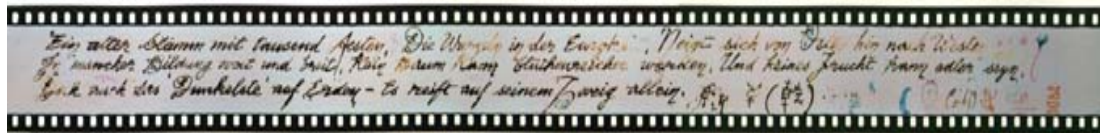 Ein alter Stamm mit tausend Aesten, Die Wurzeln in der Ewigkeit, Neigt sich von Osten hin nach Westen
In mancher Bildung weit und breit. Kein Baum kann bluthenreicher werden, Und keines Frucht kann edler seyn,
Doch auch das Dunkelste auf Erden - Es reift auf seinem Zweig allein.